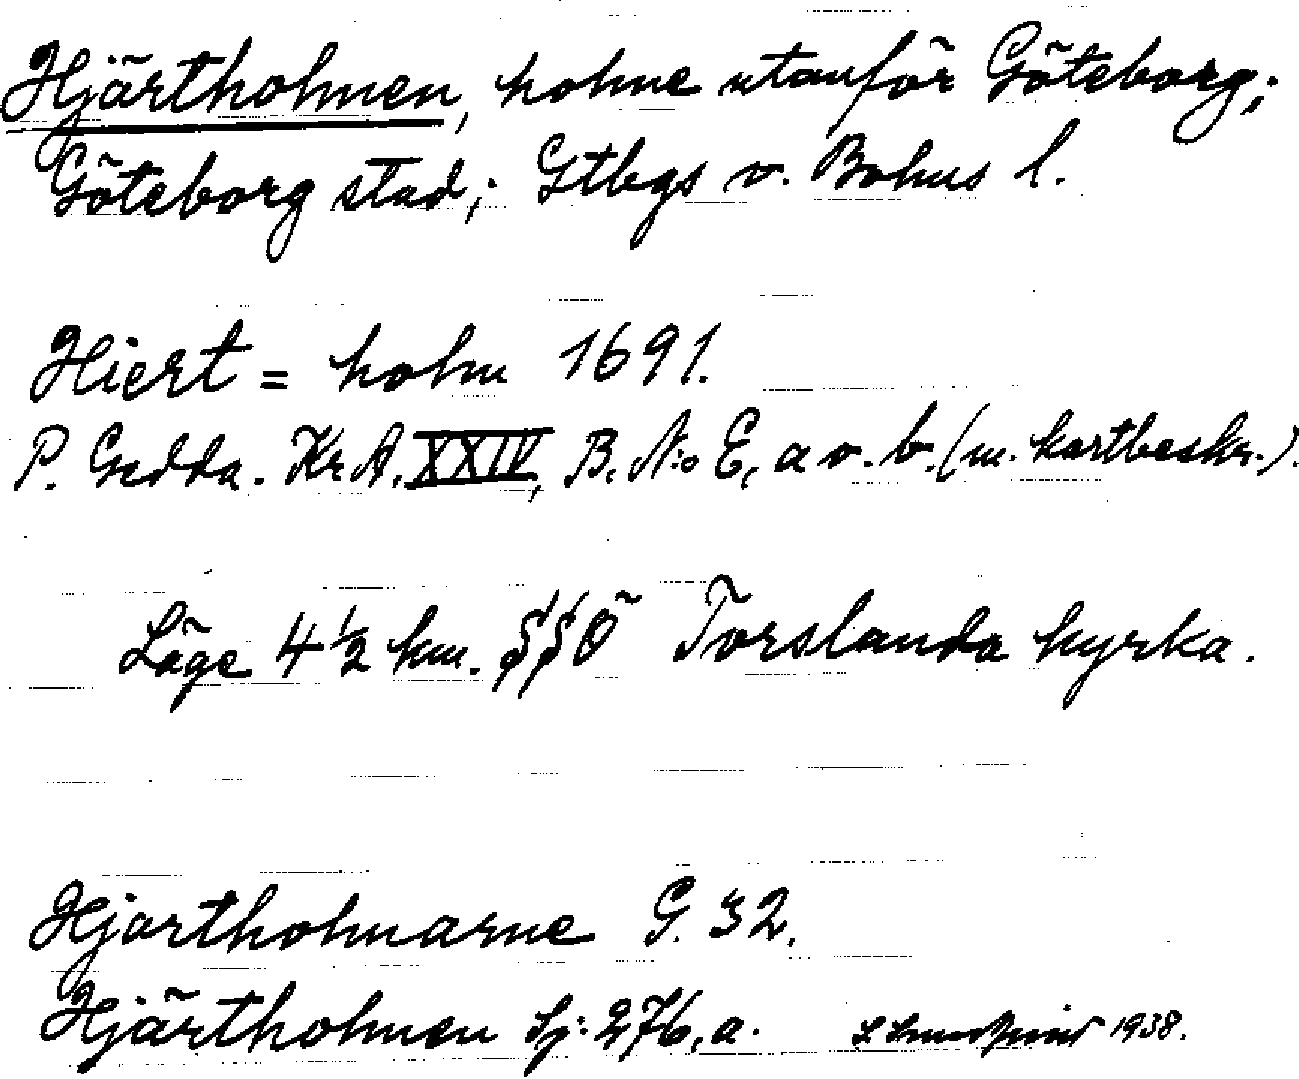 Hjärtholmen, holme utanför Göteborg;
Göteborg stad; Gtbgs o. Bohus l.
Hiert = holm 1691.
P. Gedda. Kr. A. XXIV, B. N:o E, a o. b. (m. kartbeskr.).
Läge 4 1/2 km. SSÖ Torslanda kyrka.
Hjartholmarne G. 32.
Hjärtholmen Sj. 276, a. 1938.